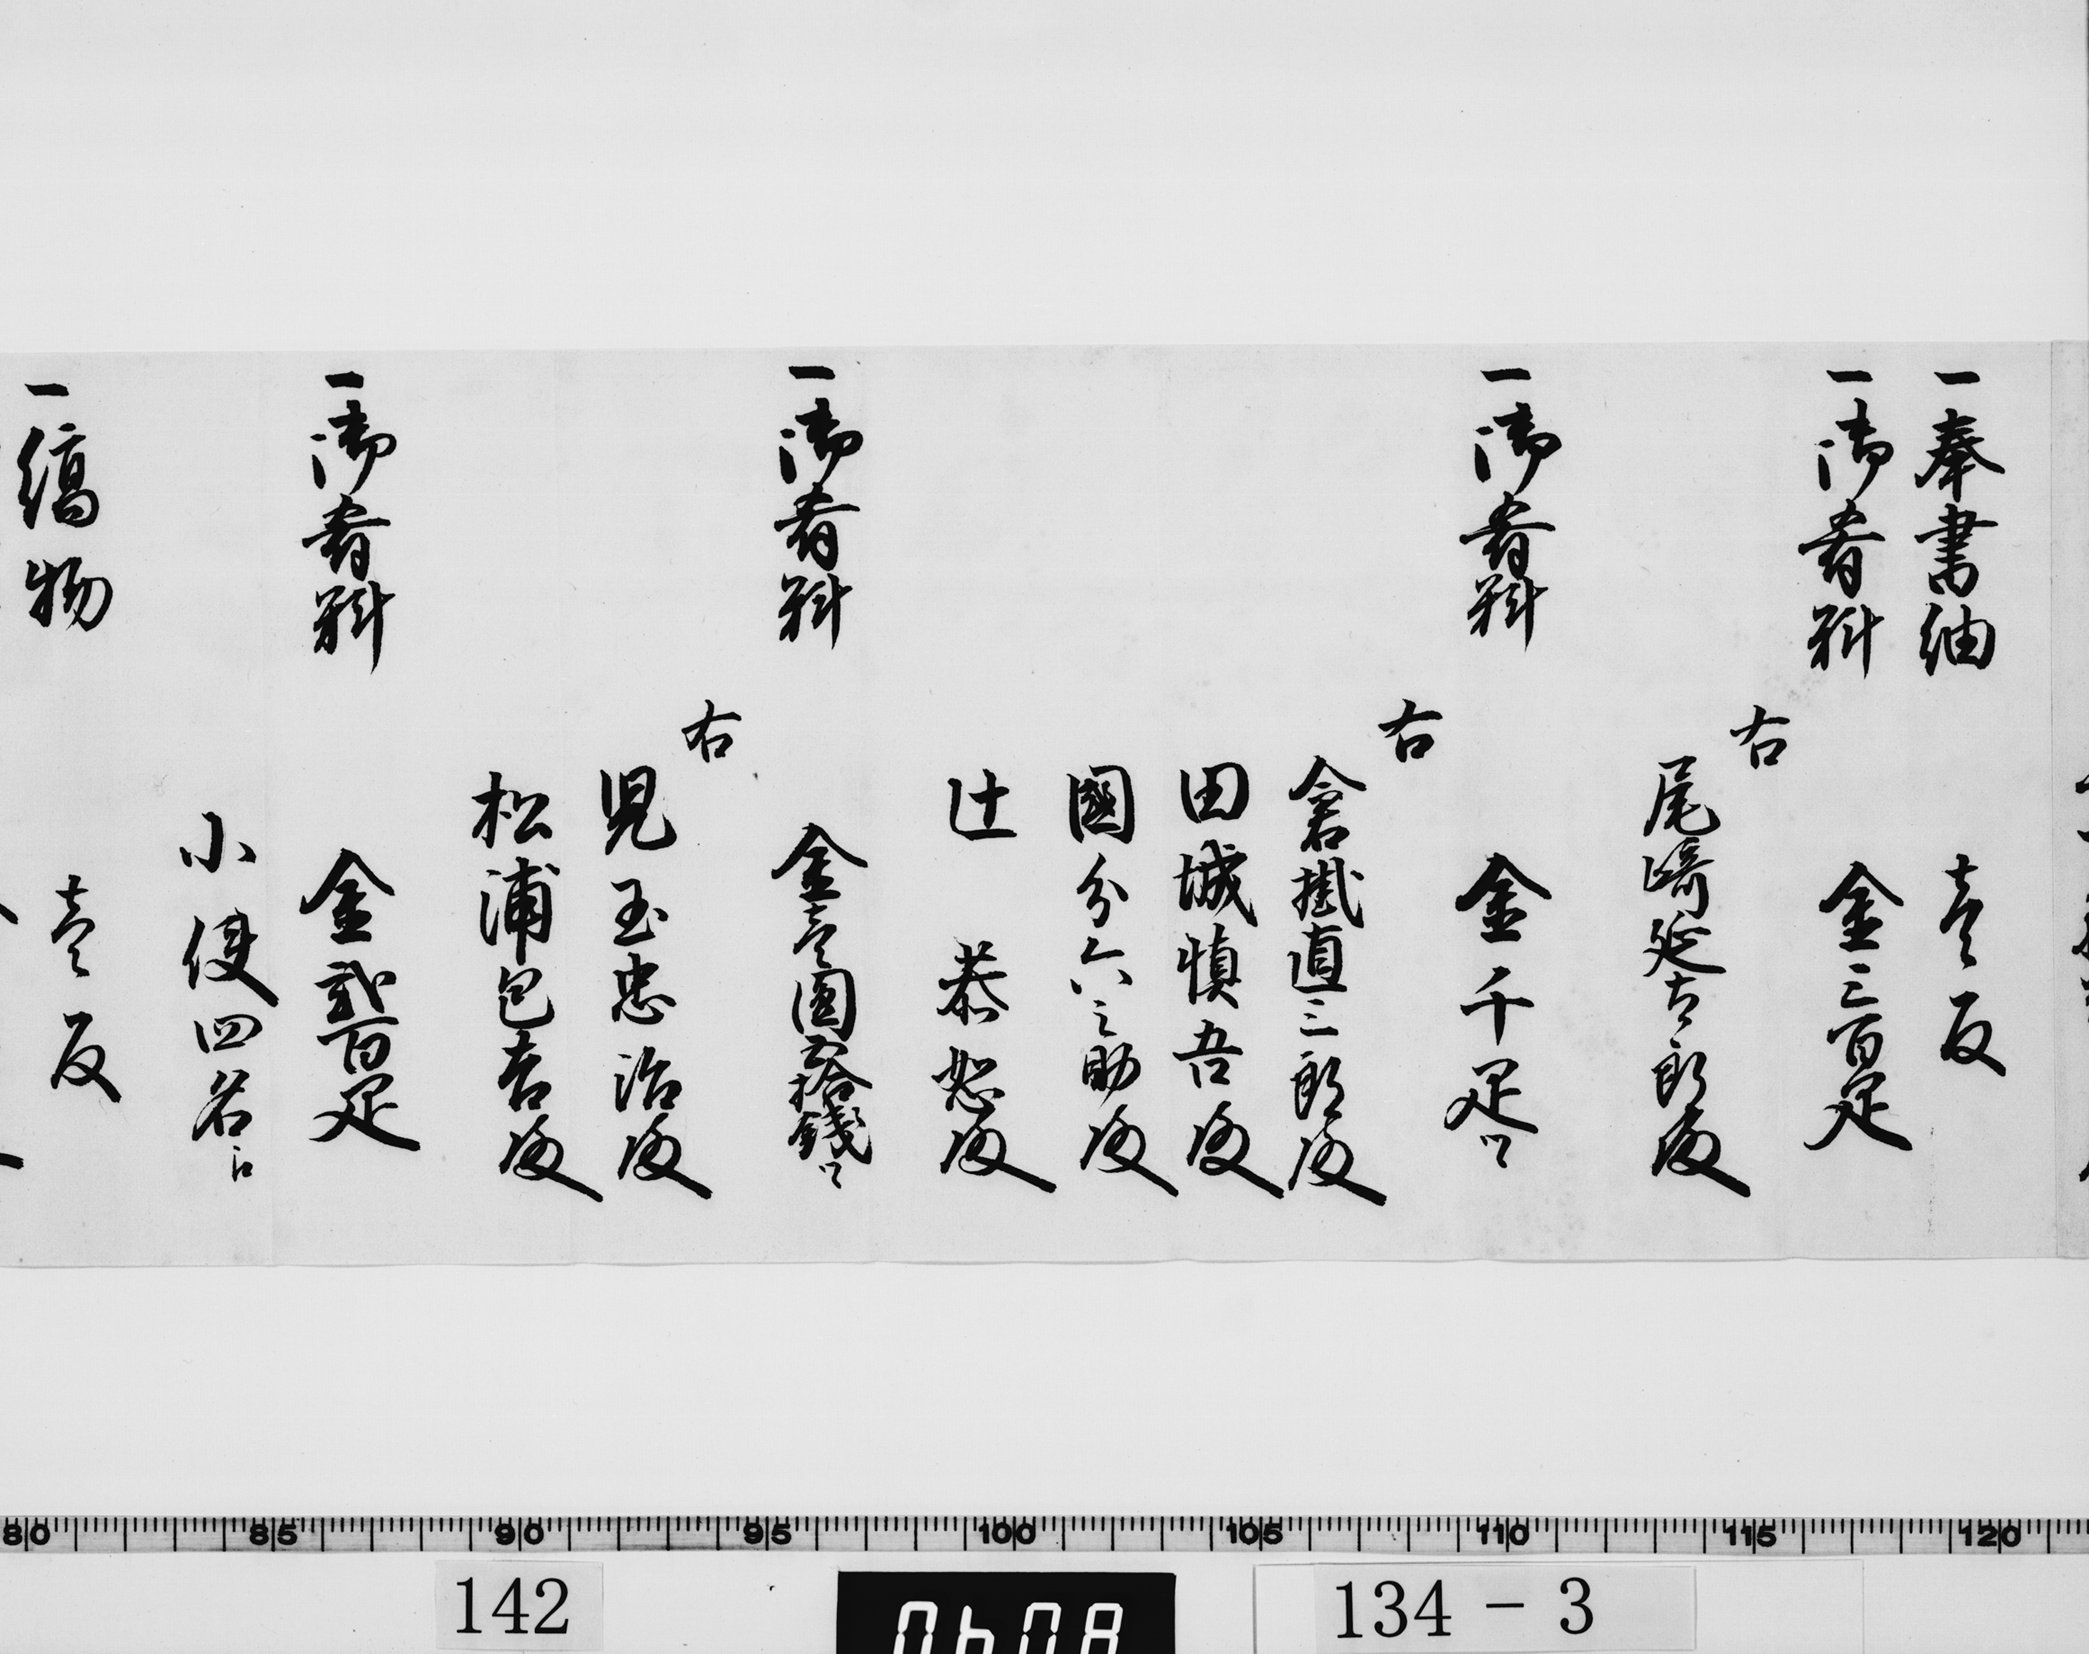 一奉書紬 壱反
一御肴料 金三百疋
右
尾崎延太郎殿
一御肴料 金千疋ツヽ
右
倉掛直三郎殿
田城慎吾殿
國分六之助殿
辻 恭恕殿
一御肴料 金壱圓五拾錢ツヽ
右
児玉忠治殿
松浦包吉殿
一御肴料 金貳百疋
小使四名
一縞物 壱反
80 85 90 95 100 105 110 115 120
142
0608
134-3